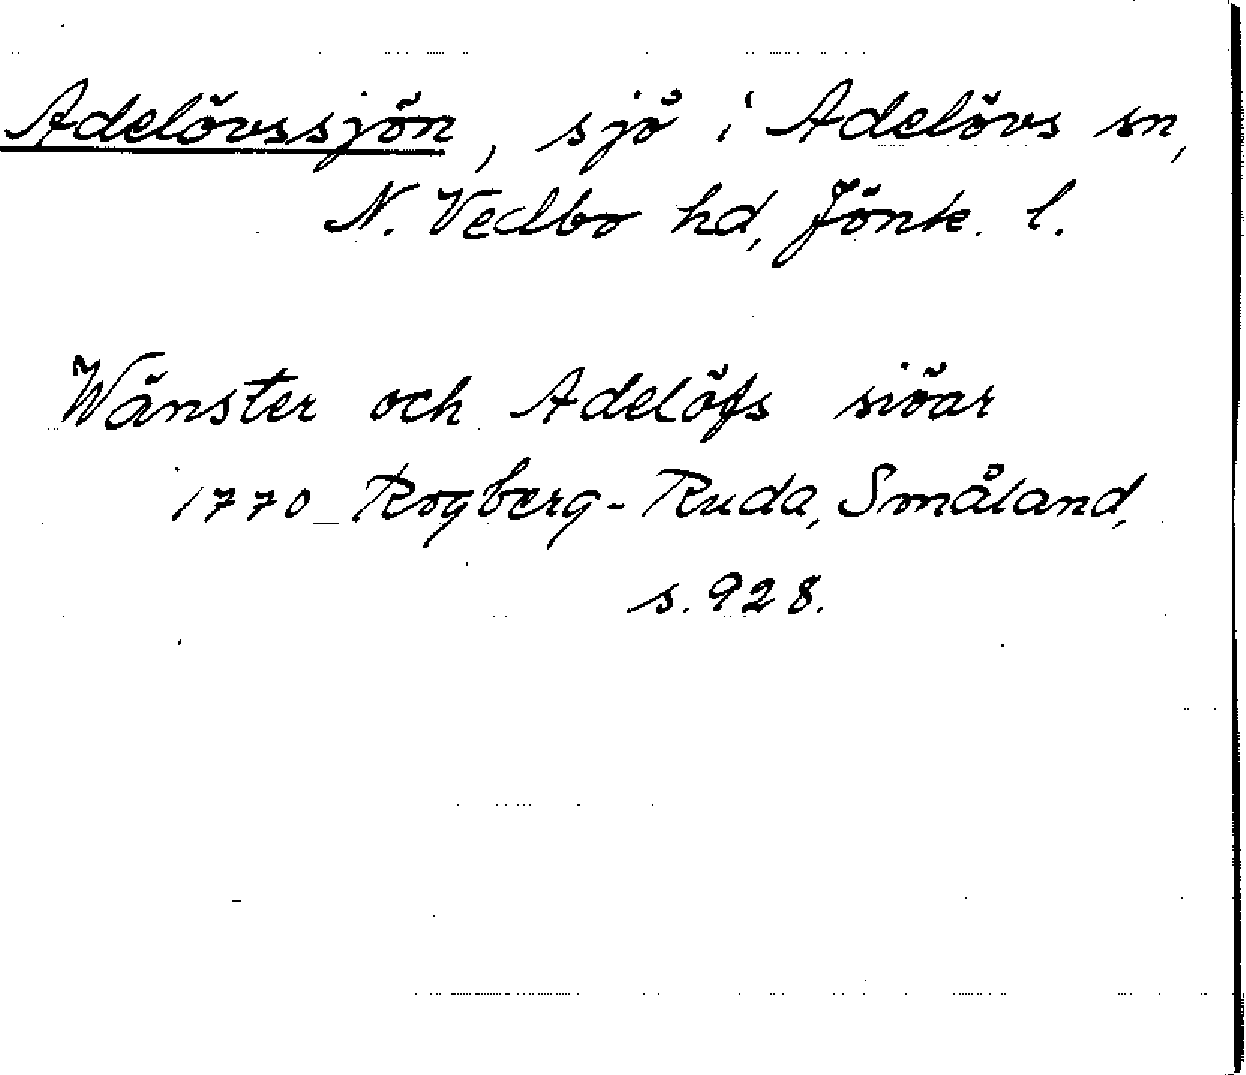 Adelövssjön, sjö i Adelövs sn,
N. Vedbo hd, Jönk. l.
Wänster och Adelöfs siöar
1770 Rogberg-Ruda, Småland,
s. 928.